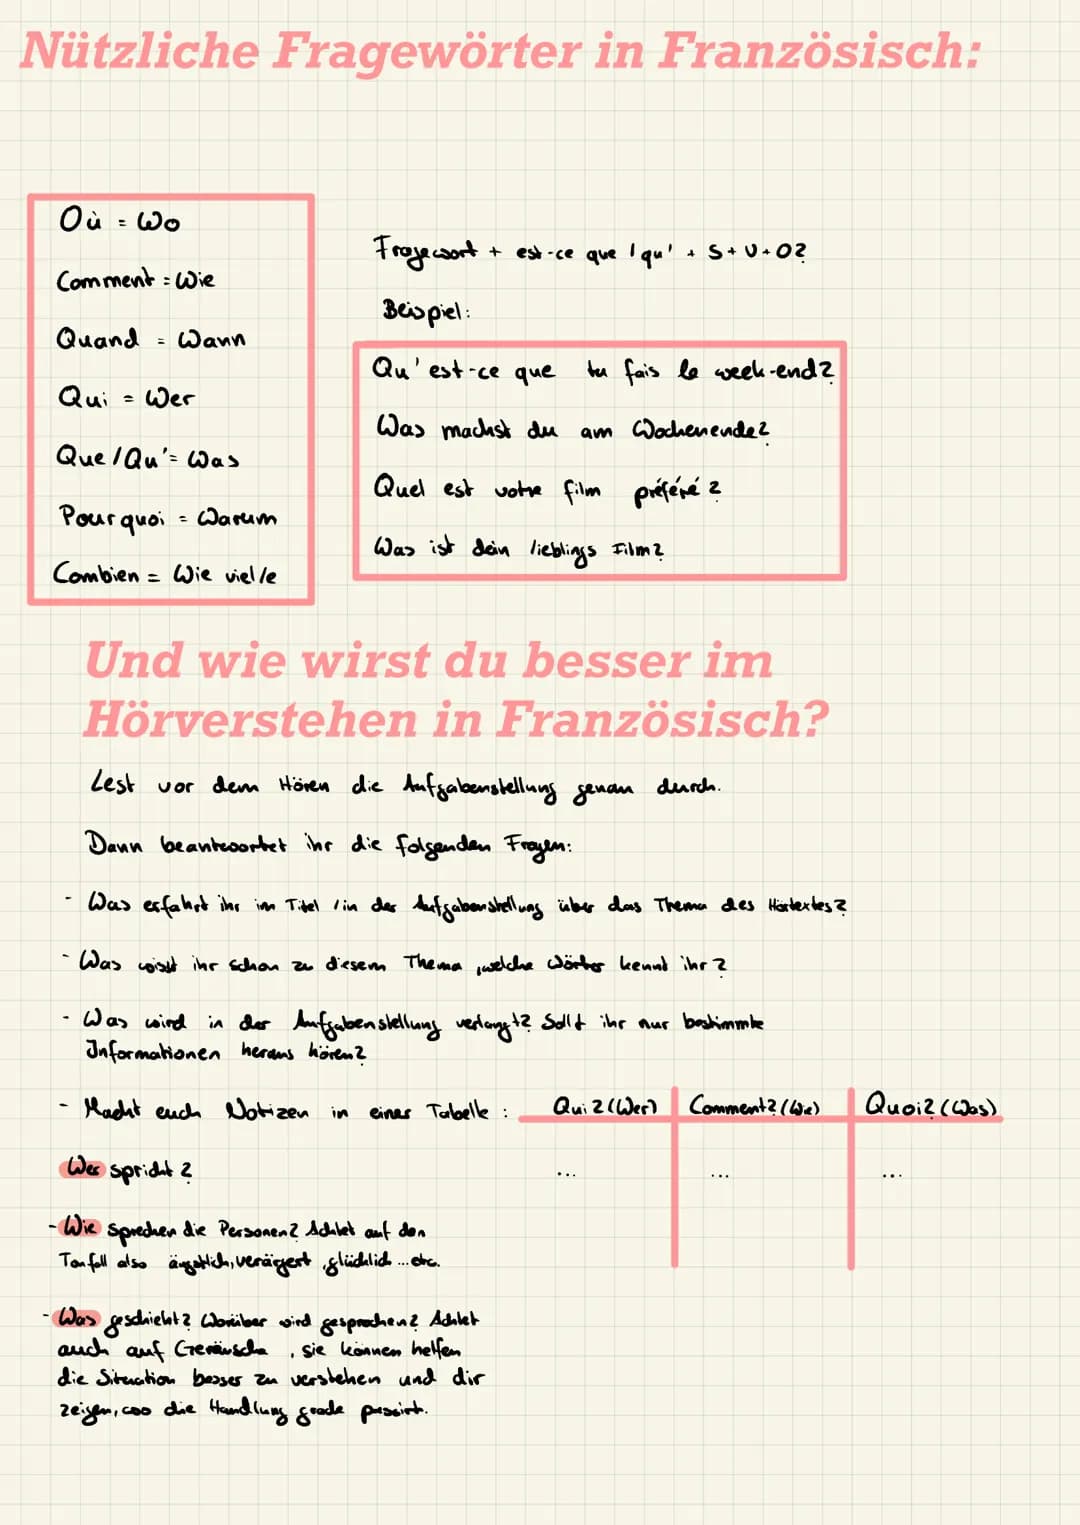 Nützliche Fragewörter in Französisch:
Où = Wo
Comment = Wie
Quand = Wann
Qui = Wer
Que / Qu' = Was
Pourquoi = Warum
Combien = Wie viel/e
Fragewort + est-ce que / qu' + S + V + O?
Beispiel:
Qu'est-ce que tu fais le week-end?
Was machst du am Wochenende?
Quel est votre film préféré?
Was ist dein lieblings Film?
Und wie wirst du besser im
Hörverstehen in Französisch?
Lest vor dem Hören die Aufgabenstellung genau durch.
Dann beantwortet ihr die folgenden Fragen:
- Was erfahrt ihr im Titel / in der Aufgabenstellung über das Thema des Hörtextes?
- Was wisst ihr schon zu diesem Thema, welche Wörter kennt ihr?
- Was wird in der Aufgabenstellung verlangt? Sollt ihr nur bestimmte
Informationen heraus hören?
- Macht euch Notizen in einer Tabelle:
Qui? (Wer) Comment? (Wie) Quoi? (Was)
... ... ...
Wer spricht?
- Wie sprechen die Personen? Achtet auf den
Tonfall also ängstlich, verärgert, glücklich ... etc.
- Was geschieht? Worüber wird gesprochen? Achtet
auch auf Geräusche, sie können helfen
die Situation besser zu verstehen und dir
zeigen, wo die Handlung grade passirt.